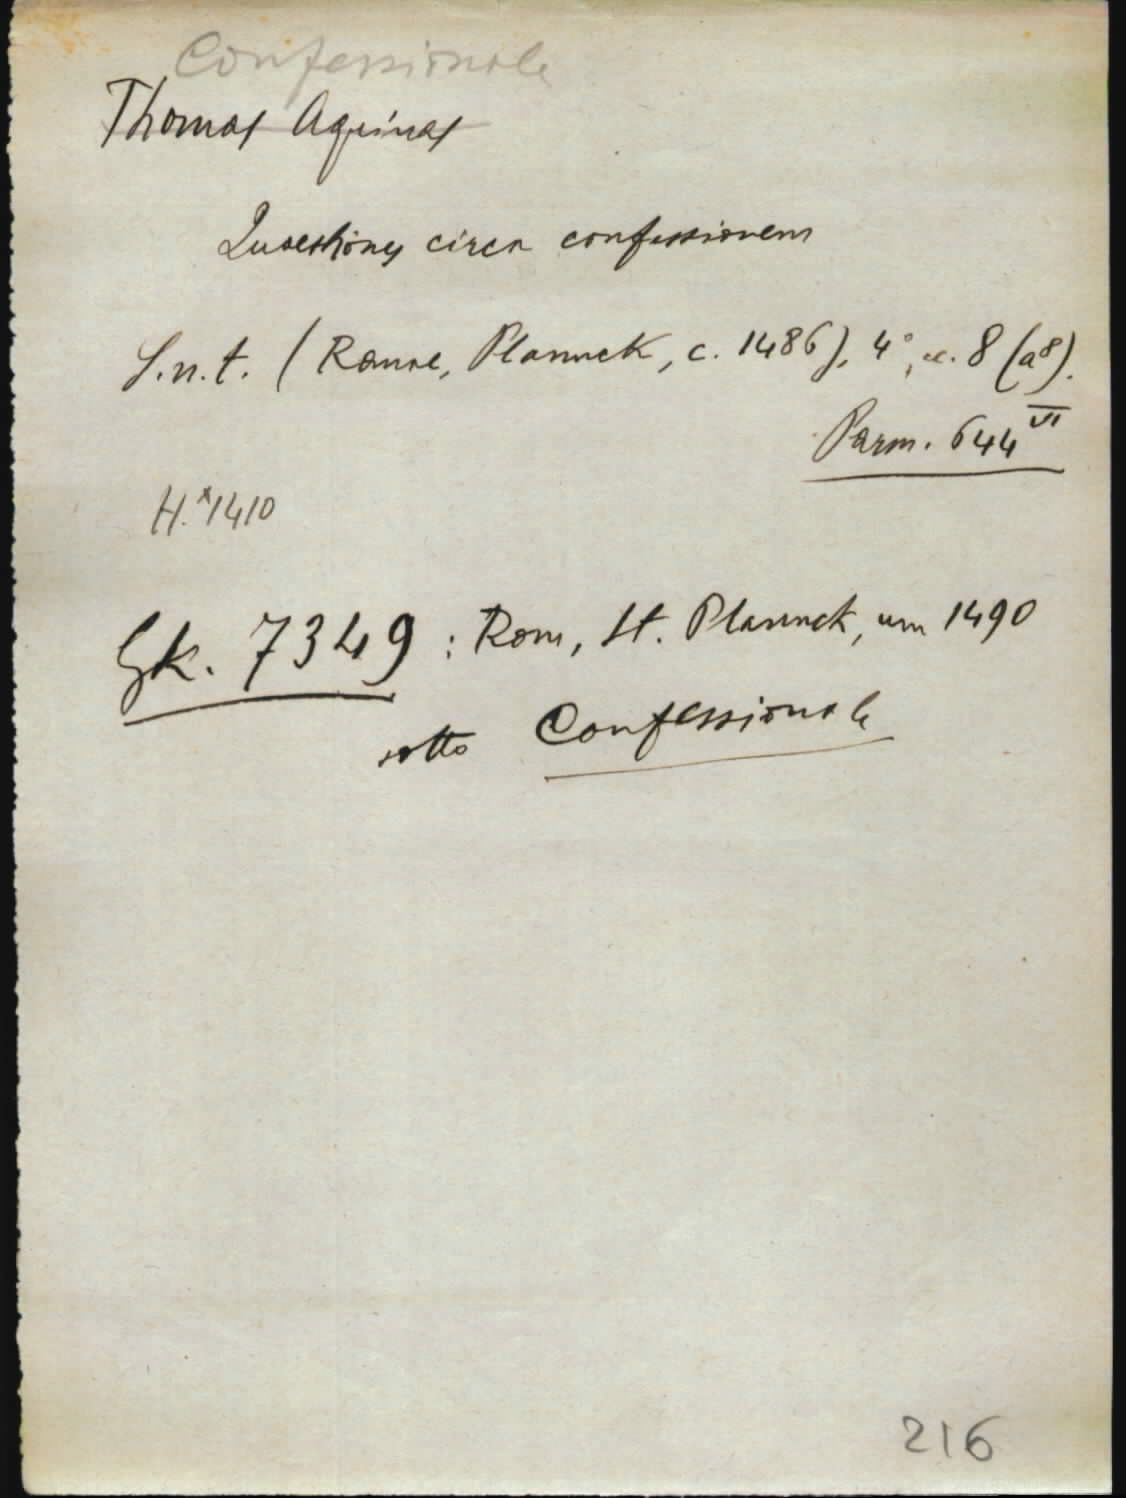 Confessionale
Thomas Aquinas
Quaestiones circa confessionem
S.n.t. (Romae, Plannck, c. 1486), 4°, cc. 8 (a⁸).
Parm. 644 VI
H. *1410
Gk. 7349 : Rom, St. Plannck, um 1490
sotto Confessionale
216